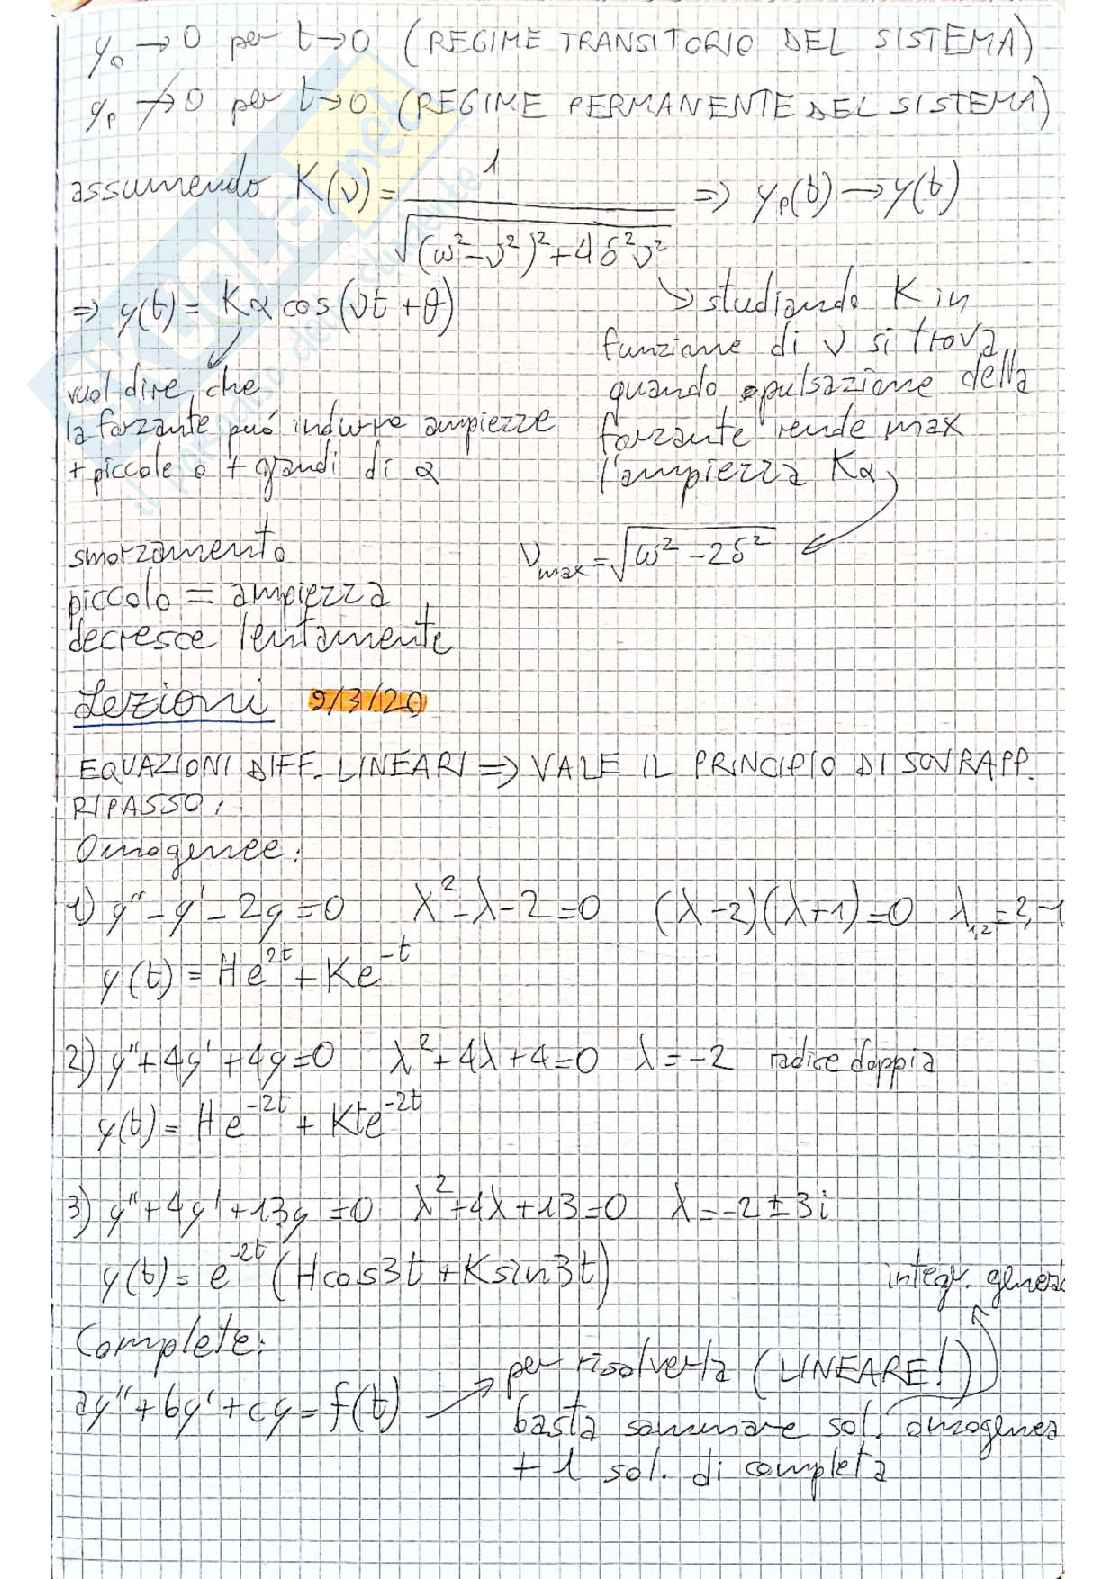 y₀ → 0 per t→0 (REGIME TRANSITORIO DEL SISTEMA)
yₚ ↛ 0 per t→0 (REGIME PERMANENTE DEL SISTEMA)
assumendo K(ν) = 1/√((ω²-ν²)²+4δ²ν²) => yₚ(t) → y(t)
=> y(t) = Kα cos(νt + θ)
vuol dire che
la forzante può indurre ampiezze
+ piccole o + grandi di α
↘ studiando K in
funzione di ν si trova
quando pulsazione della
forzante rende max
l'ampiezza Kα
ν_max = √(ω² - 2δ²)
smorzamento
piccolo = ampiezza
decresce lentamente
Lezioni 9/3/20
EQUAZIONI DIFF. LINEARI => VALE IL PRINCIPIO DI SOVRAPP.
RIPASSO:
Omogenee:
1) y'' - y' - 2y = 0 λ² - λ - 2 = 0 (λ-2)(λ+1) = 0 λ₁,₂ = 2,-1
y(t) = He^{2t} + Ke^{-t}
2) y'' + 4y' + 4y = 0 λ² + 4λ + 4 = 0 λ = -2 radice doppia
y(t) = He^{-2t} + Kte^{-2t}
3) y'' + 4y' + 13y = 0 λ² + 4λ + 13 = 0 λ = -2 ± 3i
y(t) = e^{-2t} (Hcos3t + Ksin3t)
integr.
Complete:
ay'' + by' + cy = f(t) → per risolverla (LINEARE!)
basta sommare sol. omogenea
+ 1 sol. di completa